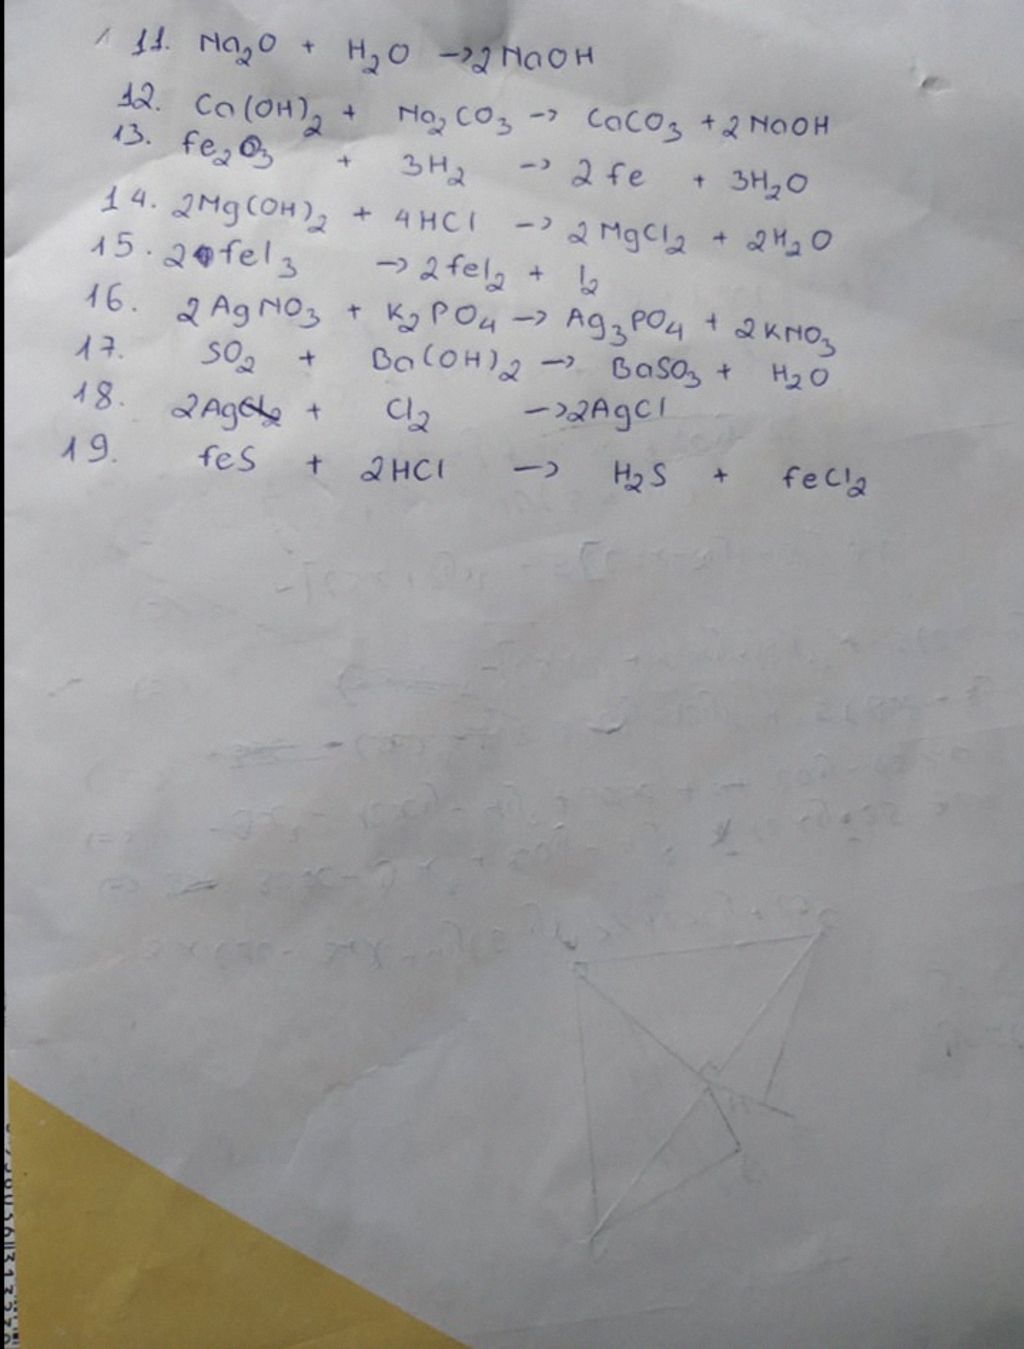 11. Na₂O + H₂O → 2NaOH
12. Ca(OH)₂ + Na₂CO₃ → CaCO₃ + 2NaOH
13. Fe₂O₃ + 3H₂ → 2Fe + 3H₂O
14. 2Mg(OH)₂ + 4HCl → 2MgCl₂ + 2H₂O
15. 2FeI₃ → 2FeI₂ + I₂
16. 2AgNO₃ + K₂PO₄ → Ag₃PO₄ + 2KNO₃
17. SO₂ + Ba(OH)₂ → BaSO₃ + H₂O
18. 2Ag + Cl₂ → 2AgCl
19. FeS + 2HCl → H₂S + FeCl₂